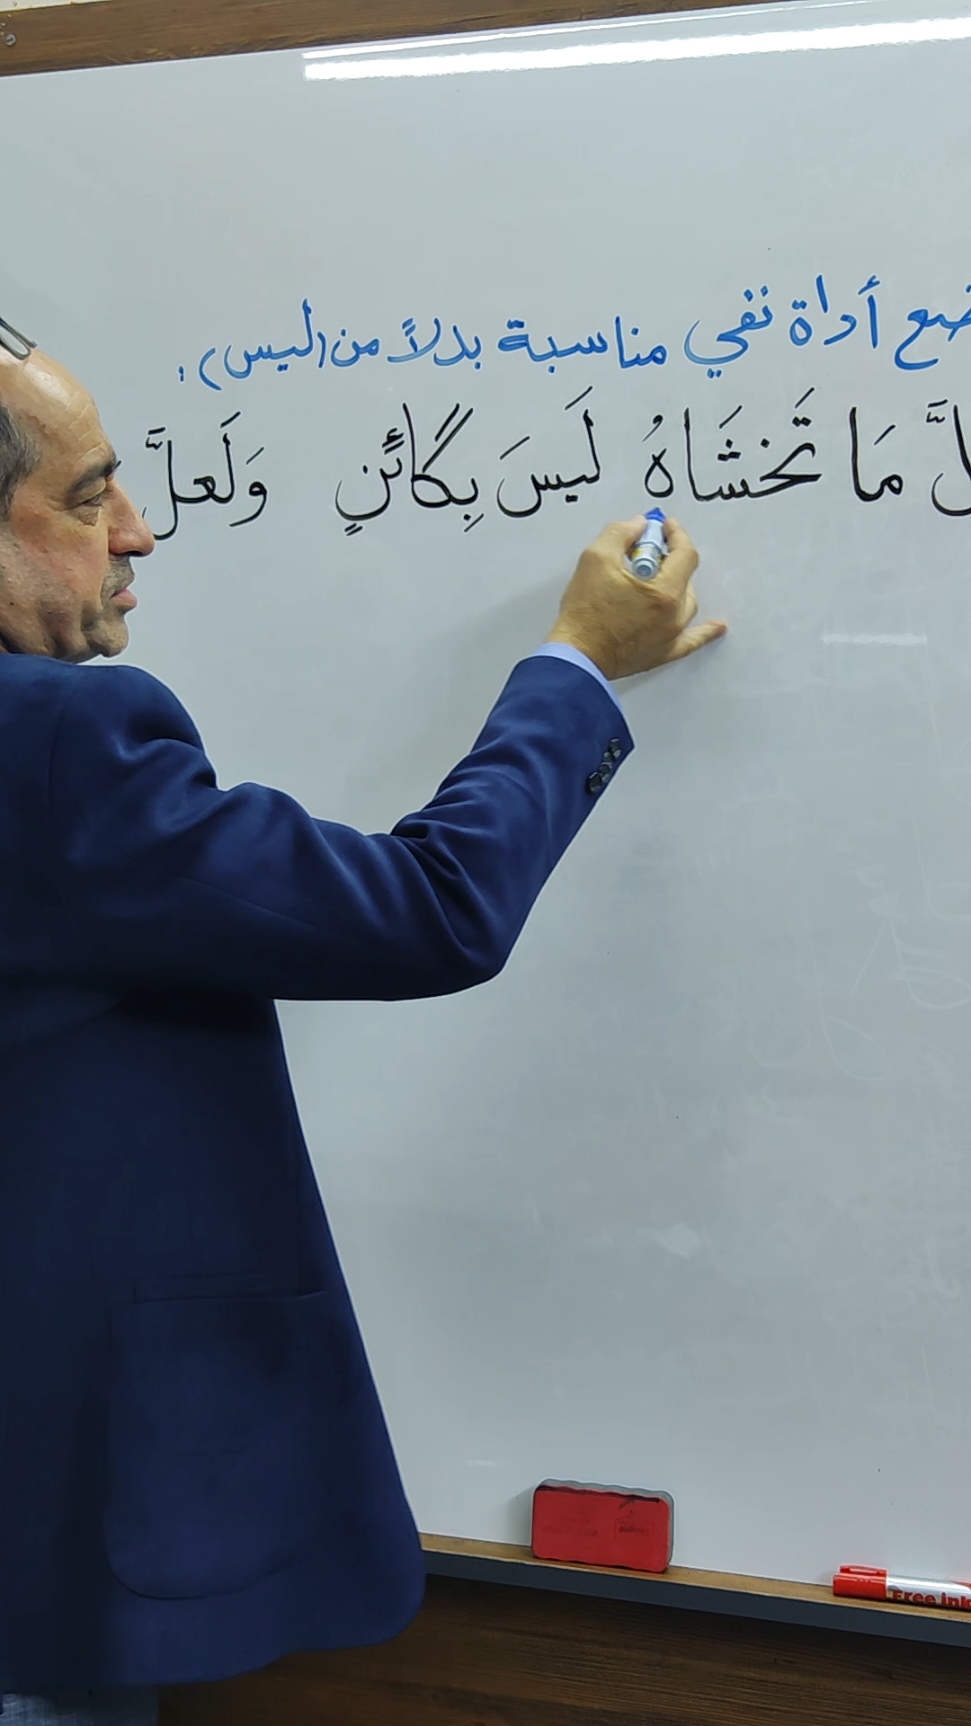 ضع أداة نفي مناسبة بدلاً من (ليس) :
لَّ مَا تَخشَاهُ لَيسَ بِكَائنٍ وَلَعلَّ
Free Ink